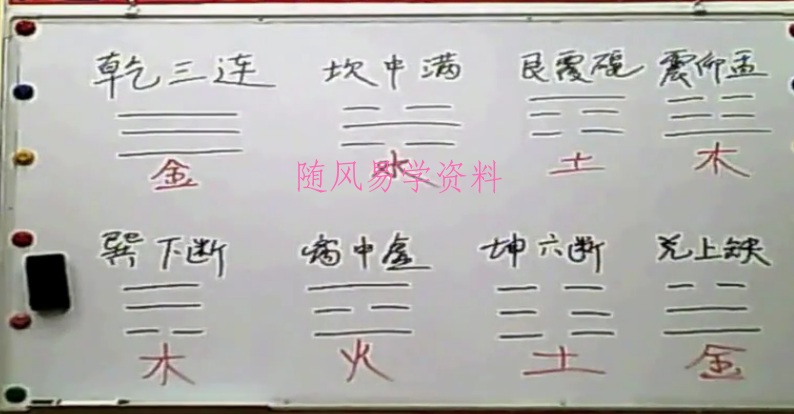 乾三连 坎中满 艮覆碗 震仰盂
金 水 土 木
随风易学资料
巽下断 离中虚 坤六断 兑上缺
木 火 土 金